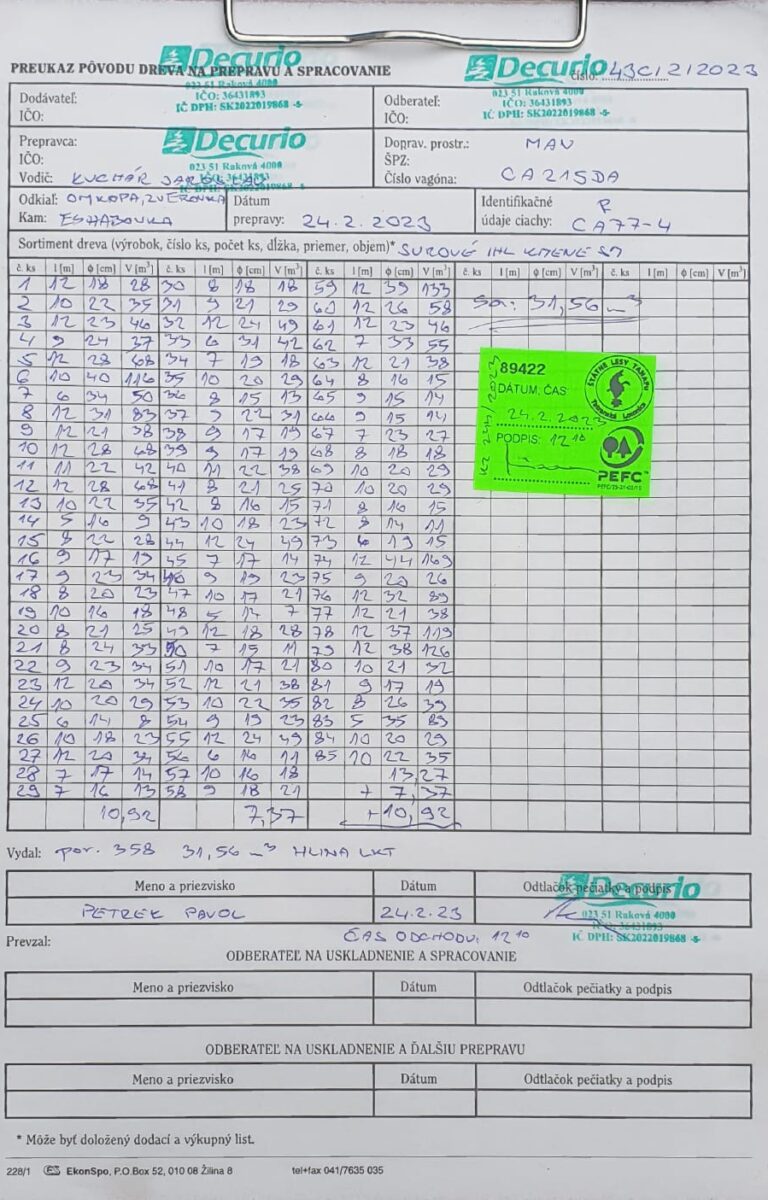 Decurio Decurio
PREUKAZ PÔVODU DREVA NA PREPRAVU A SPRACOVANIE číslo: 43C/2/2023
023 51 Raková 4000 023 51 Raková 4000
IČO: 36431893 IČO: 36431893
IČ DPH: SK2022019868 -5- IČ DPH: SK2022019868 -5-
Dodávateľ: Odberateľ:
IČO: IČO:
Decurio
Prepravca: Doprav. prostr.: MAV
IČO: ŠPZ:
023 51 Raková 4000
Vodič: KUCHÁR JAROSLAV Číslo vagóna: CA215DA
Odkiaľ: OMKOPA, ZVEROVKA Dátum Identifikačné P
Kam: prepravy: 24.2.2023 údaje ciachy: CA77-4
Sortiment dreva (výrobok, číslo ks, počet ks, dĺžka, priemer, objem)* SUROVÉ IHL KMENE
č. ks l [m] ϕ [cm] V [m³] č. ks l [m] ϕ [cm] V [m³] č. ks l [m] ϕ [cm] V [m³] č. ks l [m] ϕ [cm] V [m³] č. ks l [m] ϕ [cm] V [m³]
1 12 18 28 30 8 18 18 59 12 39 133
2 10 22 35 31 9 21 29 60 12 26 58 31,56 m³
3 12 23 46 32 12 24 49 61 12 23 46
4 9 24 37 33 6 31 42 62 7 33 55
5 12 28 68 34 7 19 18 63 12 21 38
6 10 40 116 35 10 20 29 64 8 16 15
7 6 34 50 36 8 15 13 65 9 15 14
8 12 31 83 37 9 22 31 66 9 15 14
9 12 21 38 38 9 17 19 67 7 23 27
10 12 28 68 39 9 17 19 68 8 18 18
11 11 22 42 40 11 22 38 69 10 20 29
12 12 28 68 41 8 21 25 70 10 20 29
13 10 22 35 42 8 16 15 71 8 16 15
14 5 16 9 43 10 18 23 72 8 14 11
15 8 22 28 44 12 24 49 73 6 19 15
16 9 17 19 45 7 17 14 74 12 44 169
17 9 23 34 46 9 19 23 75 9 20 26
18 8 20 23 47 10 17 21 76 12 32 89
19 10 16 18 48 5 7 77 12 21 38
20 8 21 25 49 12 18 28 78 12 37 119
21 8 24 33 50 7 15 11 79 12 38 126
22 9 23 34 51 10 17 21 80 10 21 32
23 12 20 34 52 12 21 38 81 9 17 19
24 10 20 29 53 10 22 35 82 8 26 39
25 6 14 8 54 9 19 23 83 5 35 89
26 10 18 23 55 12 24 49 84 10 20 29
27 12 20 34 56 6 16 11 85 10 22 35
28 7 17 14 57 10 16 18 13,27
29 7 16 13 58 9 18 21 + 7,37
10,92 7,37 +10,92
89422
DÁTUM, ČAS
24.2.2023
PODPIS: 12 10
ŠTÁTNE LESY TANAPU
Tatranská Lomnica
PEFC™
Vydal: por. 358 31,56 m³ HLINA LKT
Decurio
Meno a priezvisko Dátum Odtlačok pečiatky a podpis
PETREK PAVOL 24.2.23 023 51 Raková 4000
IČO: 36431893
IČ DPH: SK2022019868 -5-
Prevzal: ČAS ODCHODU: 12 10
ODBERATEĽ NA USKLADNENIE A SPRACOVANIE
Meno a priezvisko Dátum Odtlačok pečiatky a podpis
ODBERATEĽ NA USKLADNENIE A ĎALŠIU PREPRAVU
Meno a priezvisko Dátum Odtlačok pečiatky a podpis
* Môže byť doložený dodací a výkupný list.
228/1 EkonSpo, P.O.Box 52, 010 08 Žilina 8 tel+fax 041/7635 035